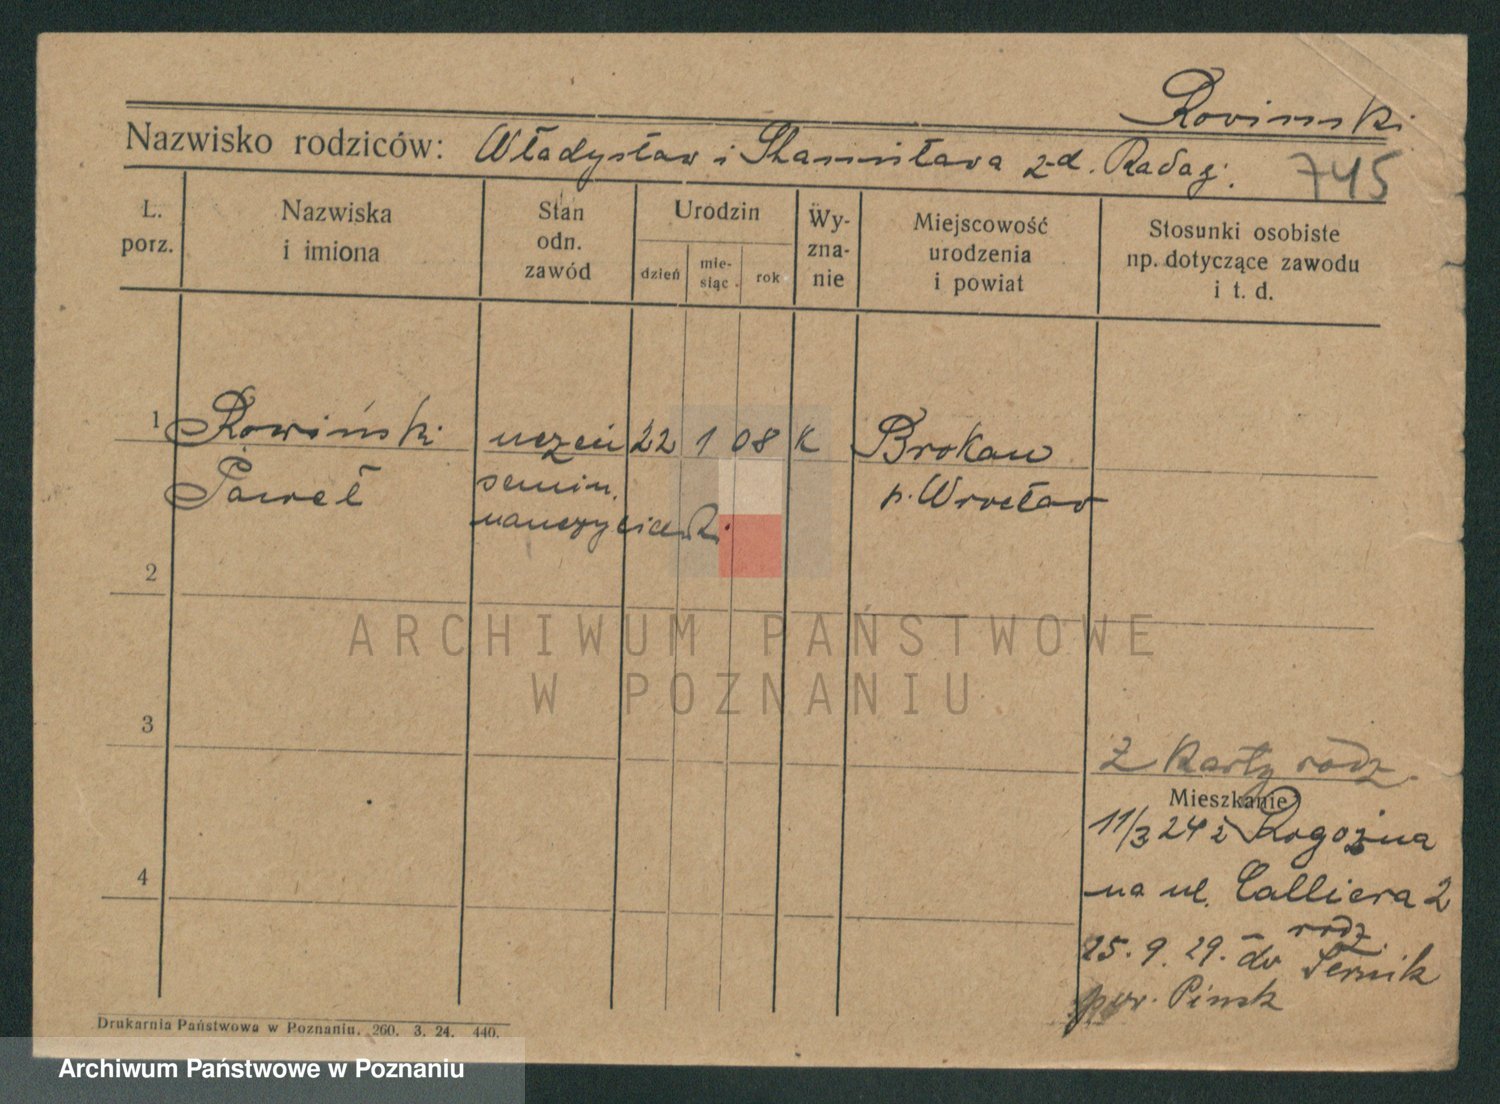 Rowiński
Nazwisko rodziców: Władysław i Stanisława z d. Rataj.
745
L. porz.
Nazwiska i imiona
Stan odn. zawód
Urodzin
dzień
mie- siąc
rok
Wy- zna- nie
Miejscowość urodzenia i powiat
Stosunki osobiste np. dotyczące zawodu i t. d.
1 Rowiński uczeń 22 1 08 K Brokau
Paweł semin. p. Wrocław
nauczycielski
2
3
4
Z karty rodz.
Mieszkanie
11/3 24 z Rogoźna
na ul. Calliera 2
rodz.
25. 9. 29. do Sernik
pow. Pinsk
Drukarnia Państwowa w Poznaniu. 260. 3. 24. 440.
ARCHIWUM PAŃSTWOWE
W POZNANIU
Archiwum Państwowe w Poznaniu